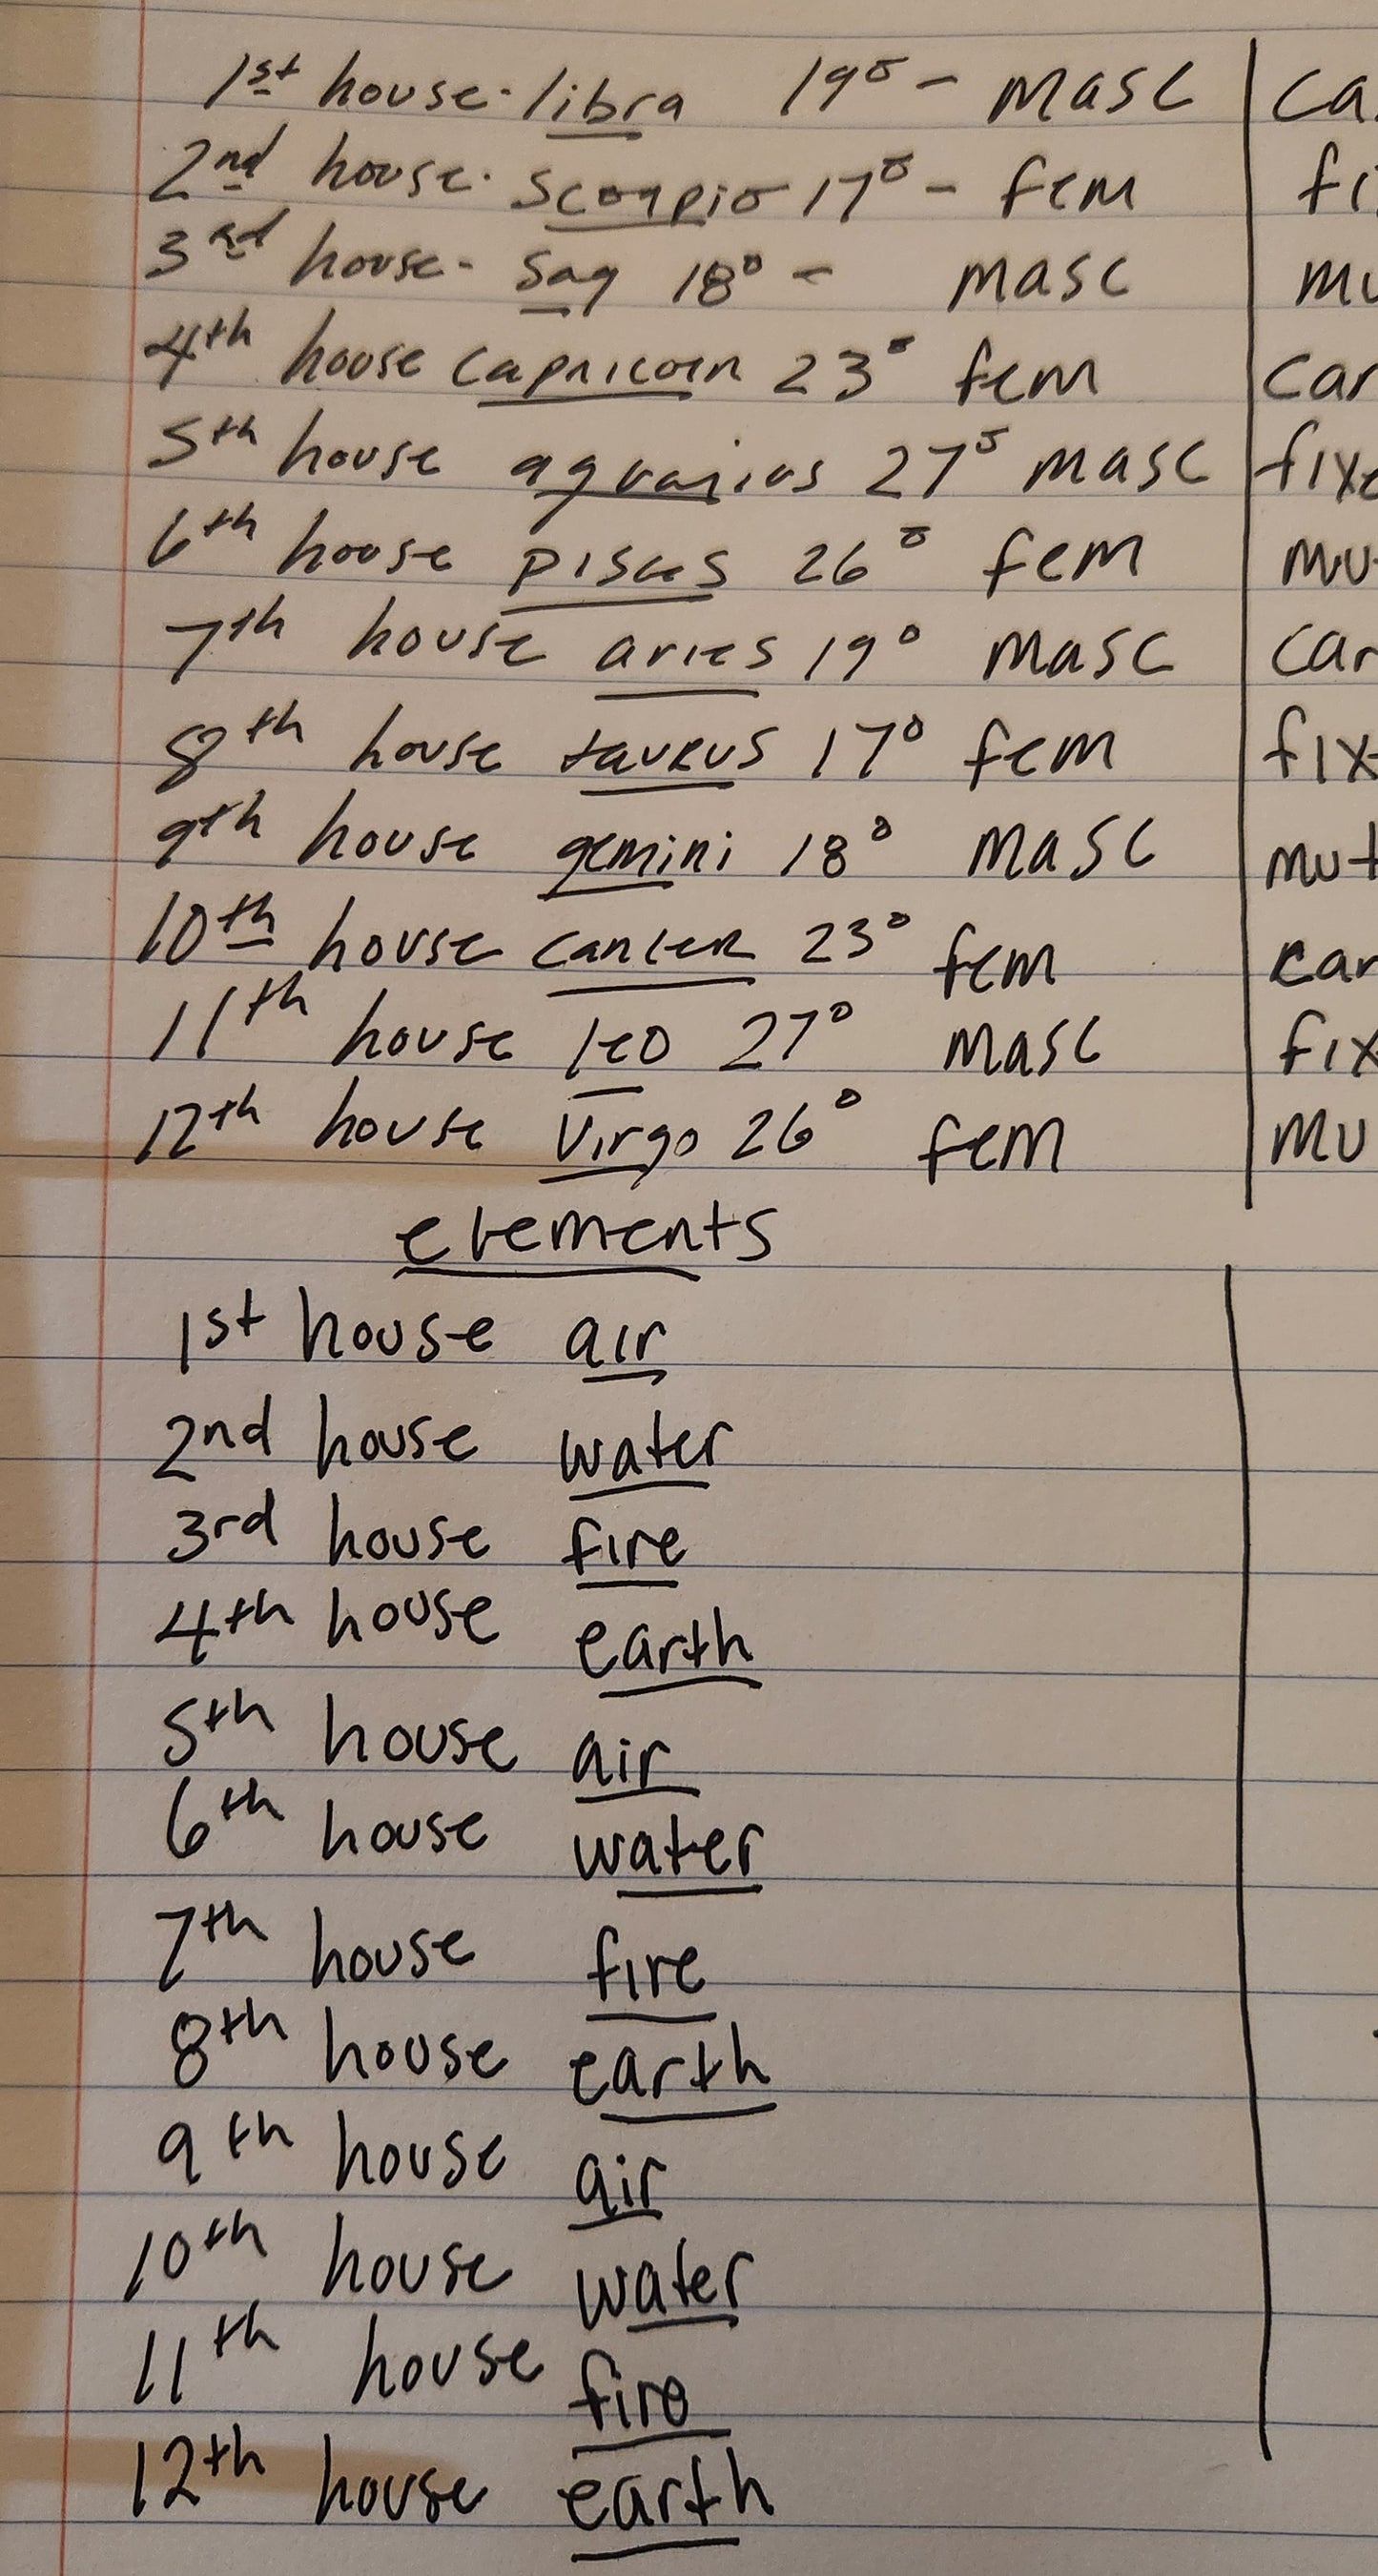 1st house. libra 19° - masc | ca
2nd house. Scorpio 17° - fem | fi
3rd house - Sag 18° - masc | mu
4th house capricorn 23° fem | car
5th house aquarius 27° masc | fixe
6th house pisces 26° fem | mu
7th house aries 19° masc | car
8th house taurus 17° fem | fix
9th house gemini 18° masc | mut
10th house cancer 23° fem | car
11th house leo 27° masc | fix
12th house Virgo 26° fem | mu
elements
1st house air
2nd house water
3rd house fire
4th house earth
5th house air
6th house water
7th house fire
8th house earth
9th house air
10th house water
11th house fire
12th house earth